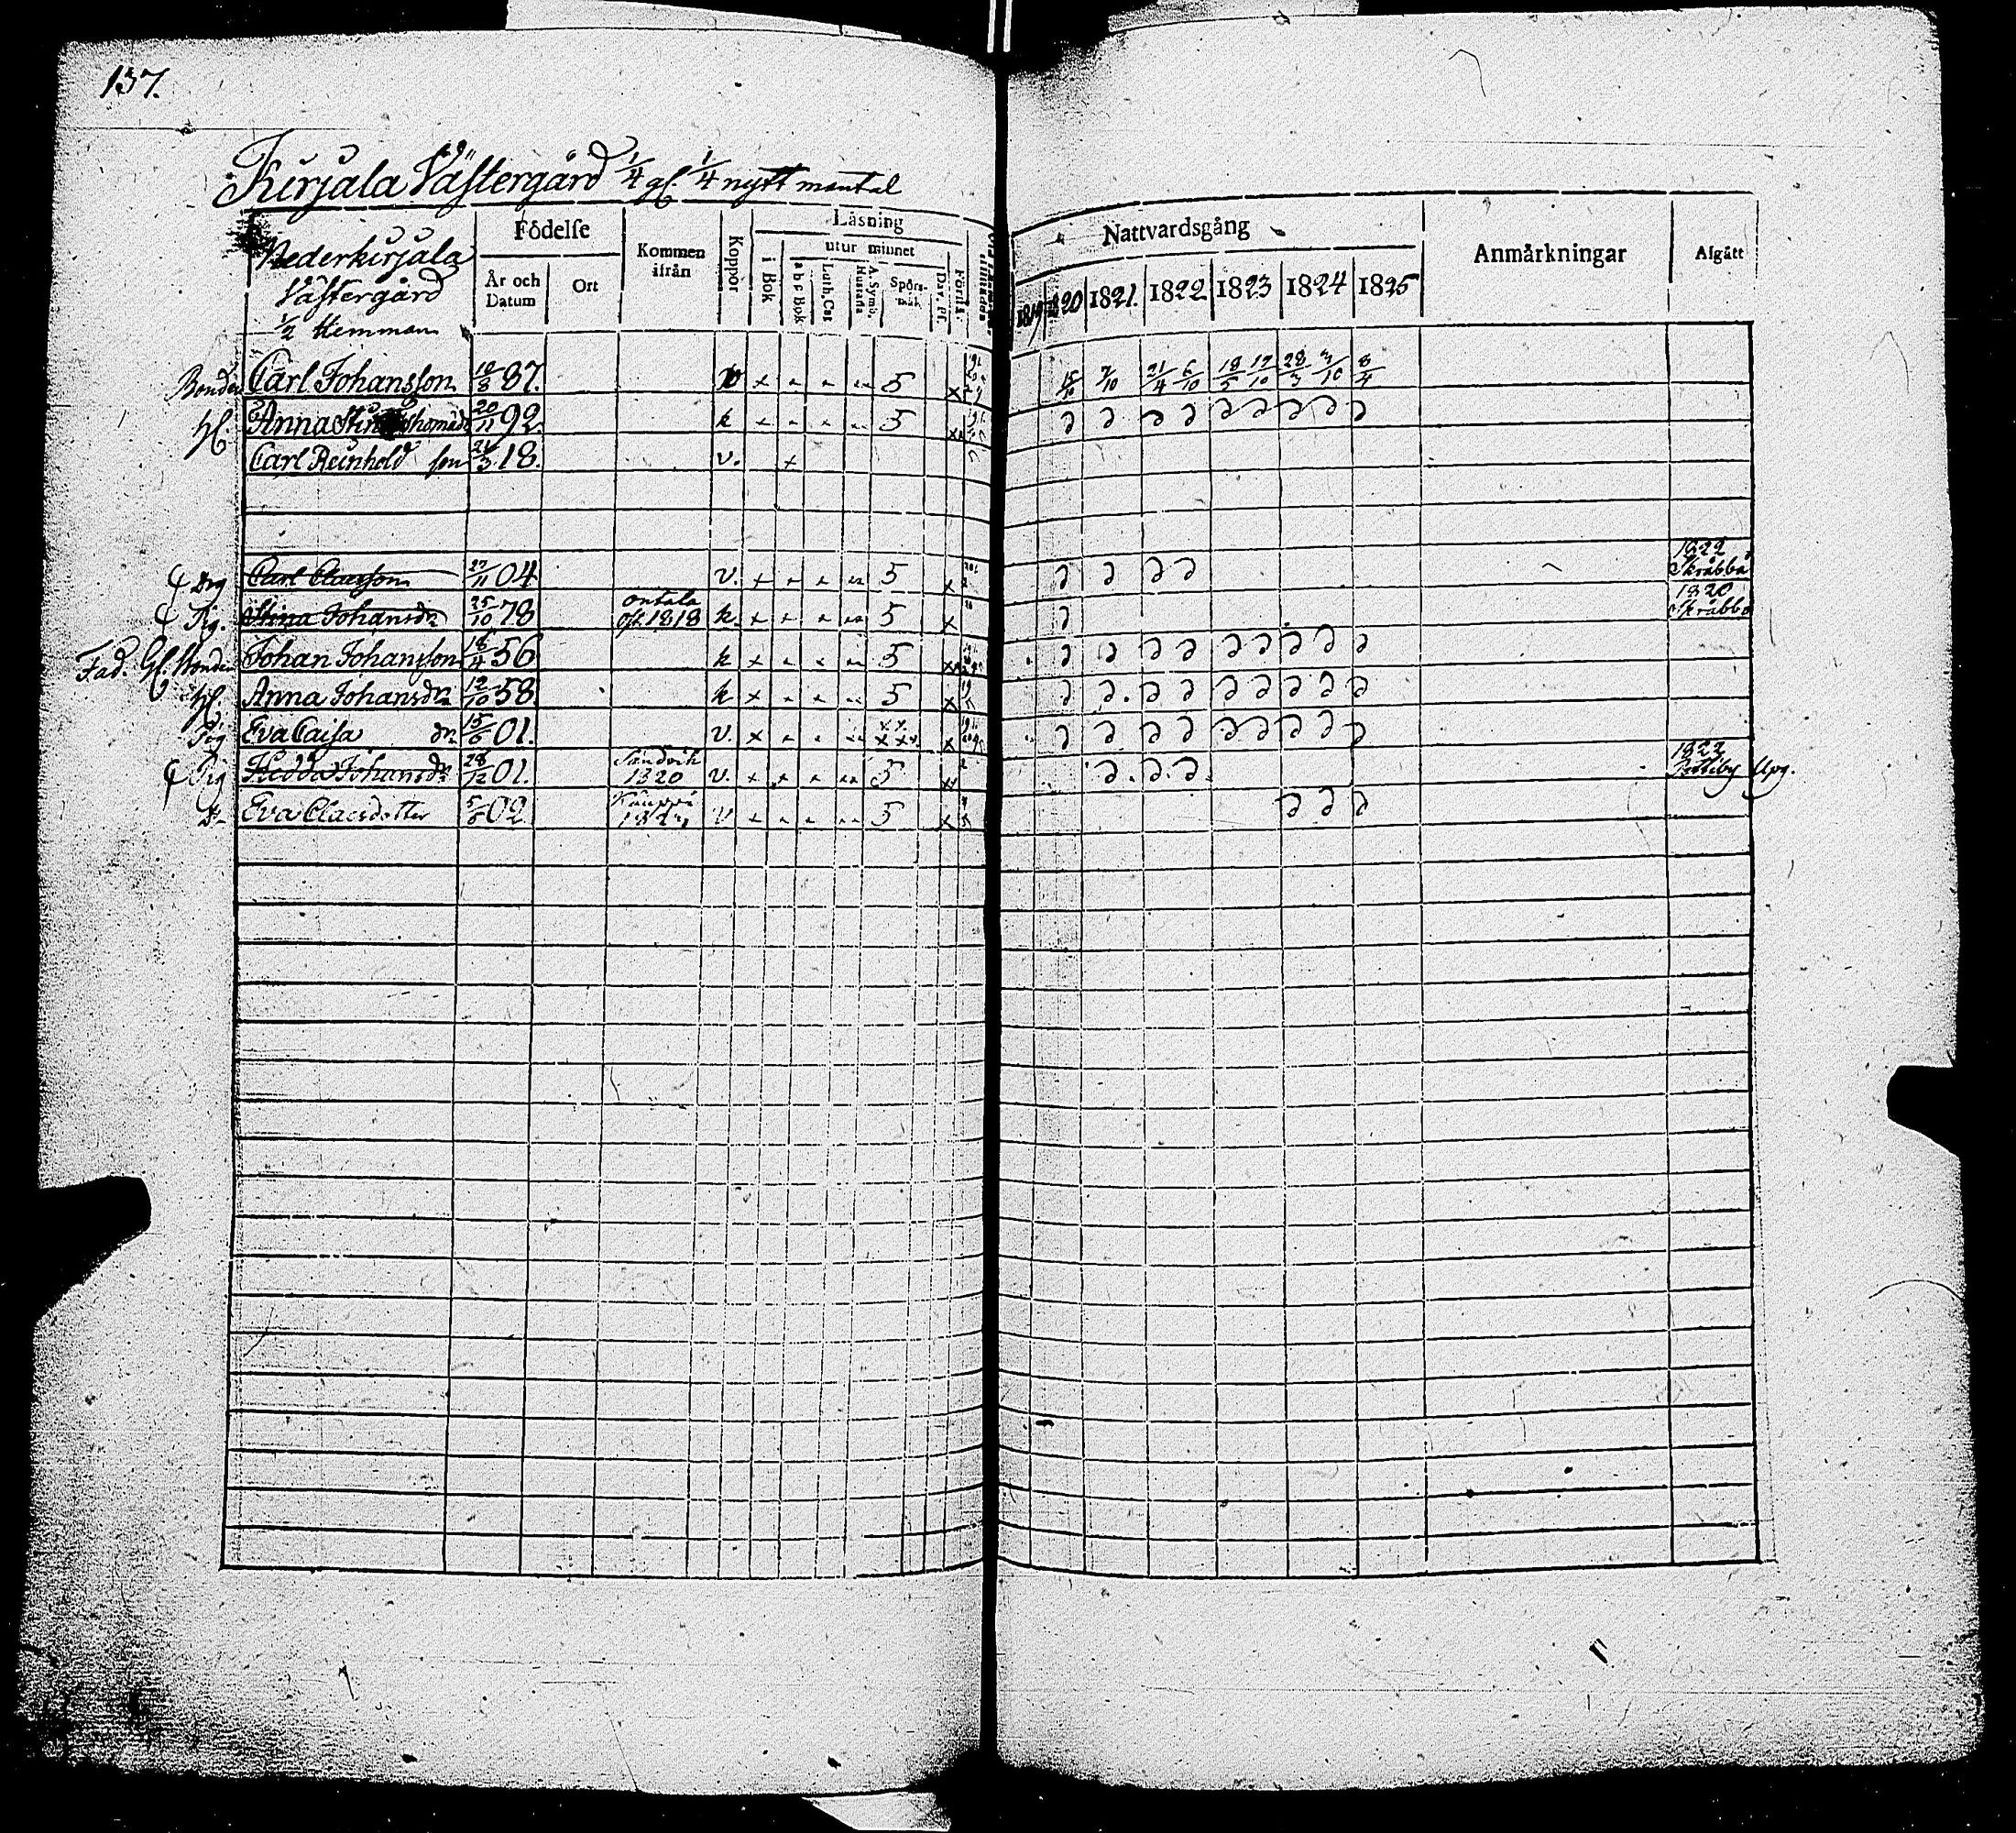 137.
Kirjala Västergård 1/4 gl. 1/4 nytt mantal
Nederkirjala Västergård 1/2 Hemman
Födelse
År och Datum
Ort
Kommen ifrån
Koppor
Läsning
i Bok
utur minnet
a b c Bok
Luth. Cat
A. Symb. Hustafla
Spörsmål
Dav. Ps.
Förstå.
Nattvardsgång
1819 1820 1821. 1822 1823 1824 1825
Anmärkningar
Afgått
Bonden Carl Johansson 18/8 87. v x 5 15/10 7/10 21/4 6/10 18/5 12/10 28/3 3/10 8/4
H. Anna Stina 20/11 92. k 5
Carl Reinhold son 24/3 18. v.
Drg Carl Claesson 27/11 04 v. 5 1822 Skråbbå
Pig. Stina Johansdr 25/10 78 1818 k. 5 1820 Skråbbå
Fad. Gl. Bonden Johan Johansson 18/4 56 k x 5
H. Anna Johansdr 12/10 58. k x 5
Pig Eva Caisa dr. 15/6 01. v. x
Pig Hedda Johansdr 28/12 01. Sandvik 1820 v. 5 1822
Dr Eva Claesdotter 5/6 02 v 5